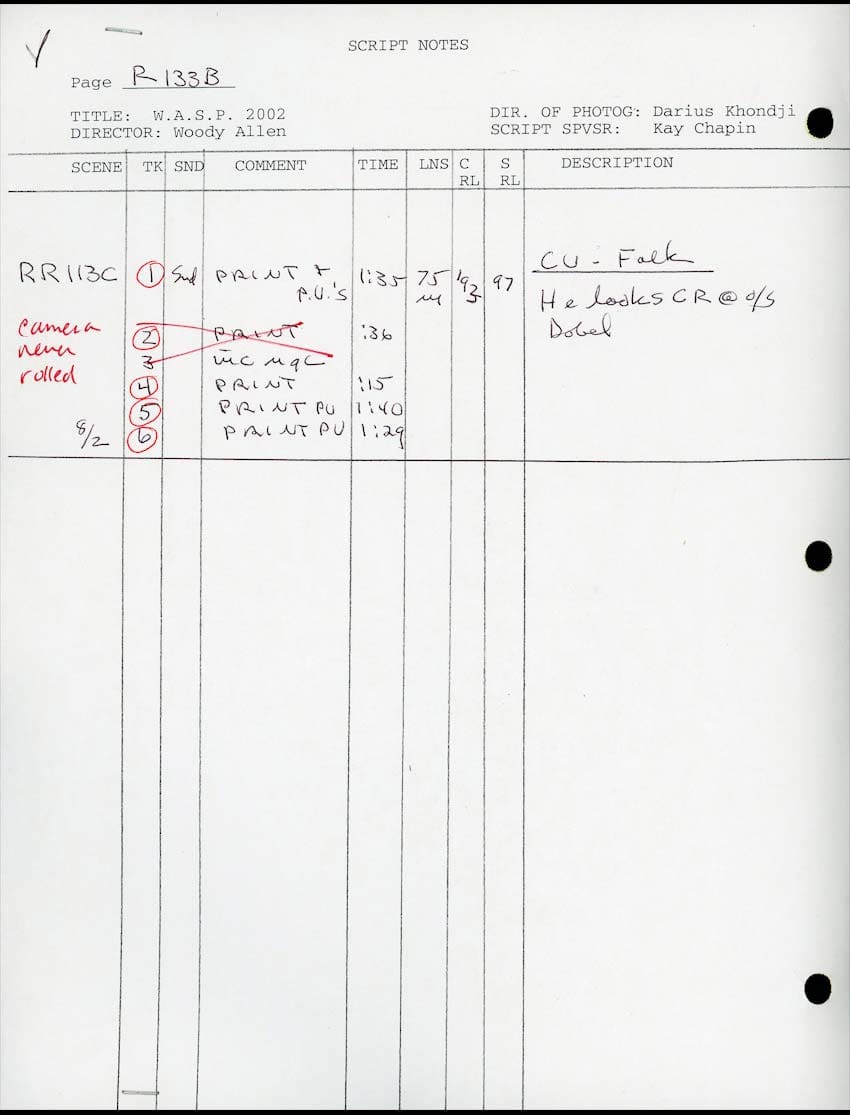 SCRIPT NOTES
Page R133B
TITLE: W.A.S.P. 2002
DIR. OF PHOTOG: Darius Khondji
DIRECTOR: Woody Allen
SCRIPT SPVSR: Kay Chapin
SCENE TK SND COMMENT TIME LNS C RL S RL DESCRIPTION
CU - Falk
RR113C 1 Snd PRINT + 1:35 75 193 97
P.U.'S
He looks CR @ o/s
Dobel
camera 2 PRINT :36
never 3 inc
rolled 4 PRINT :15
5 PRINT PU 1:40
8/2 6 PRINT PU 1:29